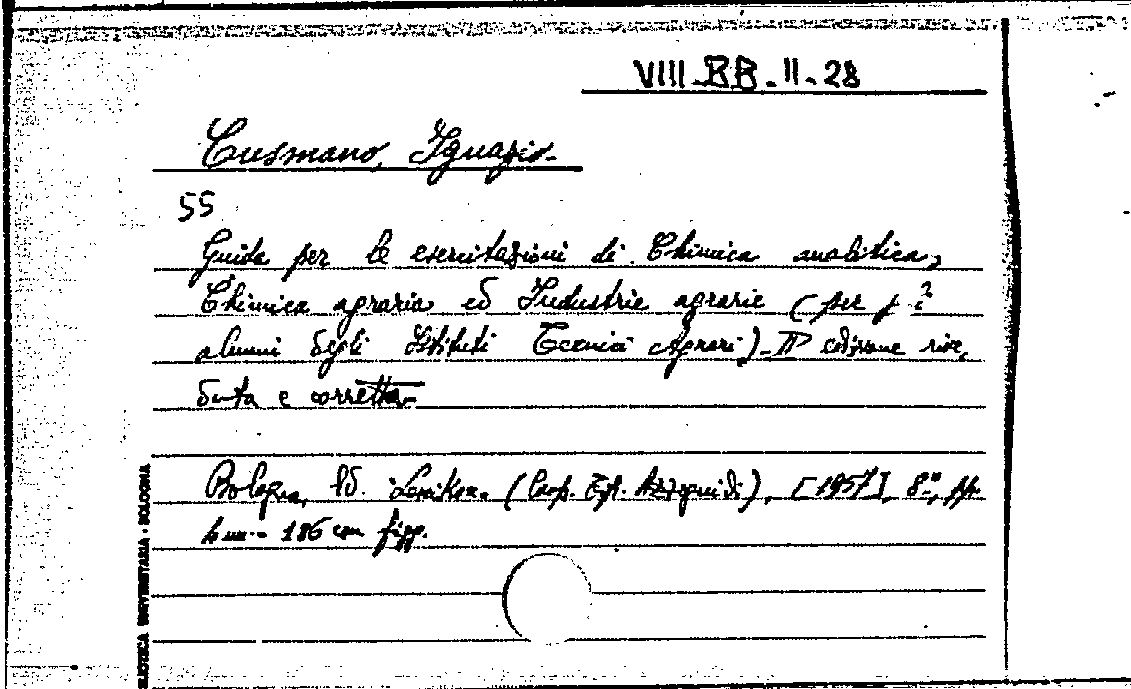 VIII-BB-II-28
Cusmano, Ignazio-
55
Guida per le esercitazioni di Chimica analitica,
Chimica agraria ed Industrie agrarie (per
alunni degli Istituti Tecnici Agrari)-IIª edizione rive,
duta e corretta-
Bologna, Ed. (Coop. Tip. Azzoguidi), [1957], 8°, pp.
186 con figg.
BIBLIOTECA UNIVERSITARIA - BOLOGNA